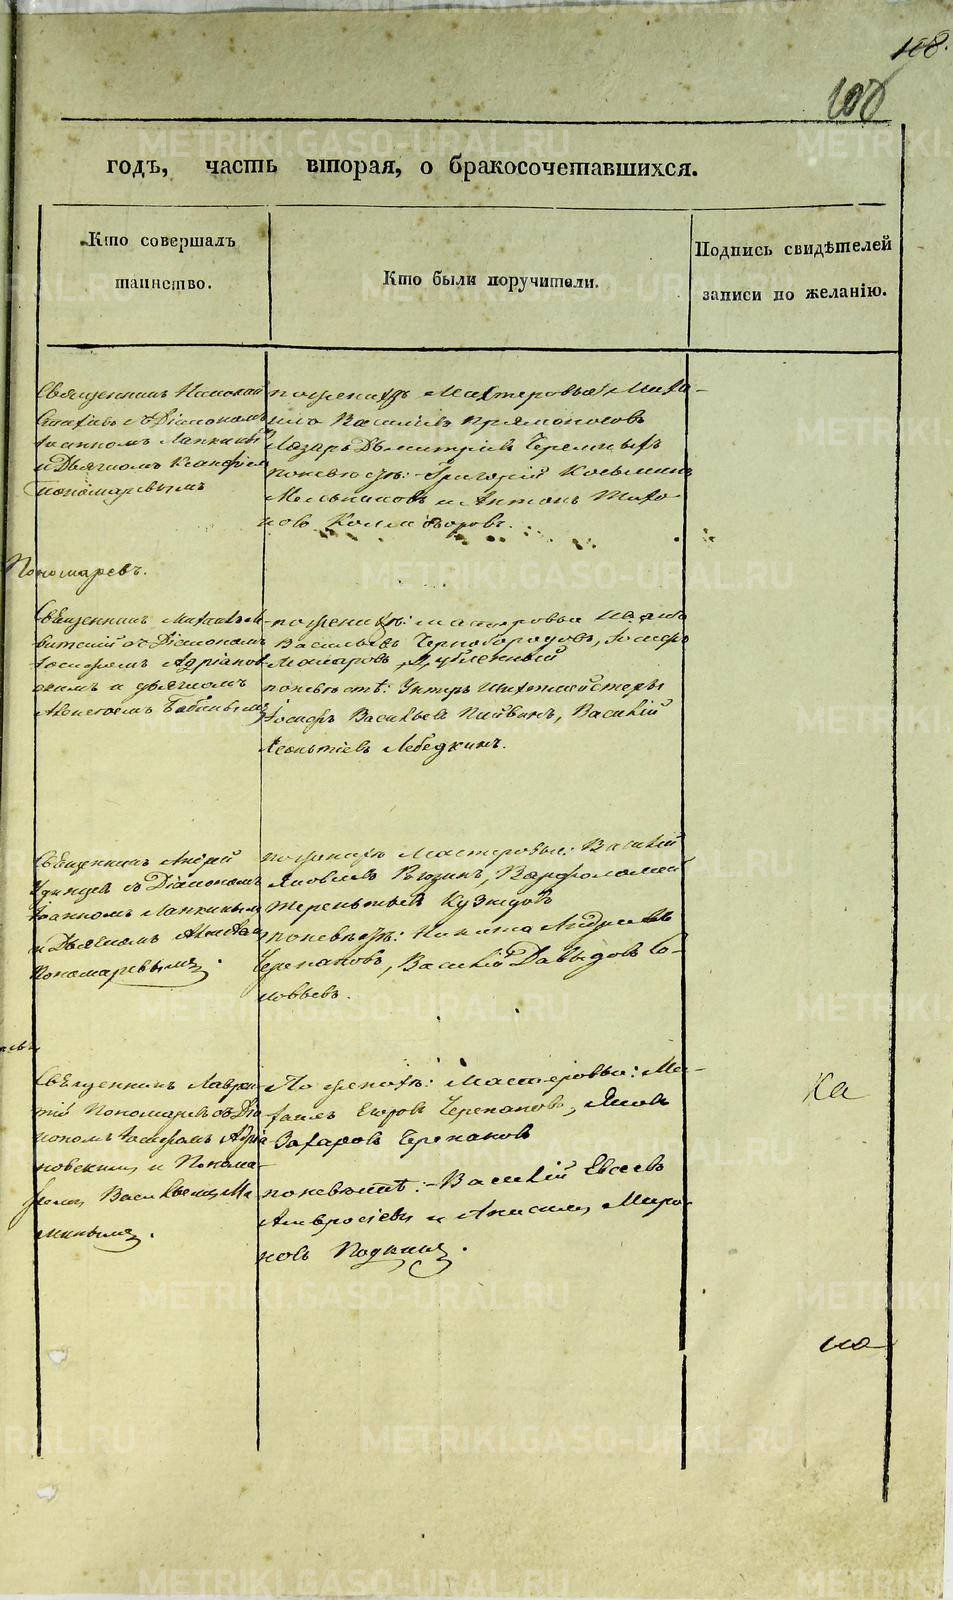 108.
108
годъ, часть вторая, о бракосочетавшихся.
Кто совершалъ
таинство.
Кто были поручители.
Подпись свидѣтелей
записи по желанію.
Священникъ Николай
съ Діакономъ
Іоанномъ Лапкинымъ
и Дьячкомъ
Пономаревымъ
по женихѣ Мастеровые Миха-
ило Васильевъ Прямоносовъ
Лазарь Дмитріевъ Черемныхъ
по невѣстѣ: Григорій Козьминъ
Мельниковъ и Антонъ Тихо-
новъ Колмогоровъ.
Пономаревъ.
Священникъ
съ Діакономъ
Іосифомъ Адріанов
скимъ и дьячкомъ
Алексѣемъ Бабинымъ
по женихѣ: мастеровые Иванъ
Васильевъ Чернобородовъ, Іосифъ
Макаровъ Дубленный
по невѣстѣ: Унтеръ Шихтмейстеръ
Іосифъ Васильевъ Пивинъ, Василій
Леонтіевъ Лебедкинъ.
Священникъ Андрей
Удинцевъ съ Діакономъ
Іоанномъ Лапкинымъ
и Дьячкомъ
Пономаревымъ.
по женихѣ Мастеровые: Василій
Яковлевъ Рюзинъ, Варфоломей
Терентьевъ Кузнецовъ
по невѣстѣ: Никита Андреевъ
Черепановъ, Василій Давыдовъ Со-
ловьевъ.
Священникъ Лаврен
тій Пономаревъ съ Діа
кономъ Іосифомъ Адріа
новскимъ и Понома-
ремъ Васильемъ Ма
минымъ.
По женихѣ: мастеровые: Ми-
хаилъ Егоровъ Черепановъ, Яковъ
Захаровъ Черепановъ
по невѣстѣ: Василій Евсеевъ
Амвросіевъ и Анисимъ Миро-
новъ Подкинъ.
Ка
на
METRIKI.GASO-URAL.RU